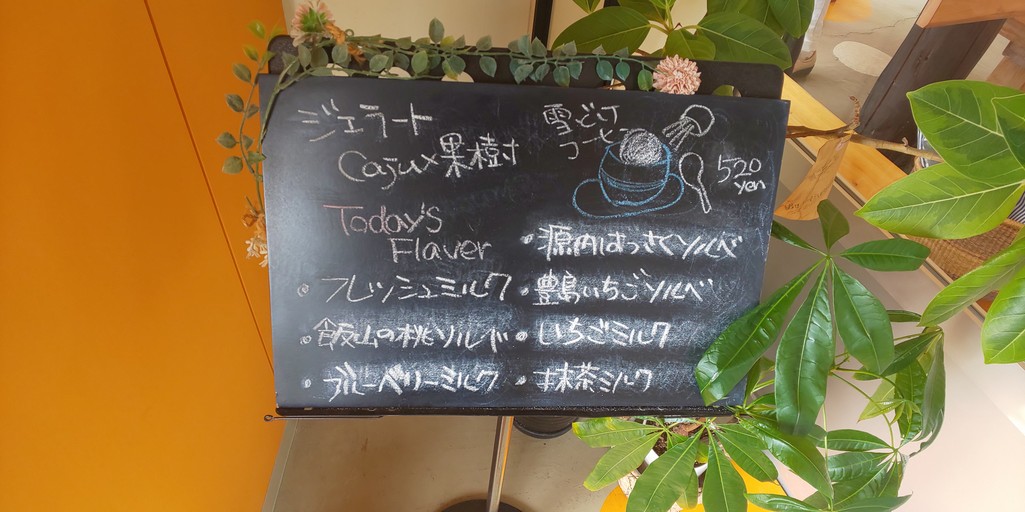 ジェラート
Cazu×果樹ナ
雪どけ
コーヒー
520
yen
Today's
Flaver
・フレッシュミルク
・飯山の桃ソルベ
・ブルーベリーミルク
・源内はっさくソルベ
・豊島いちごソルベ
・いちごミルク
・抹茶ミルク